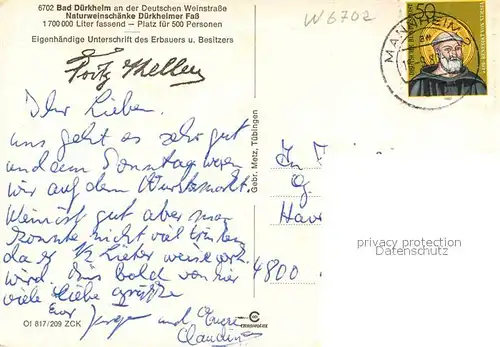 6702 Bad Dürkheim an der Deutschen Weinstraße
Naturweinschänke Dürkheimer Faß
1 700 000 Liter fassend — Platz für 500 Personen
Eigenhändige Unterschrift des Erbauers u. Besitzers
Fritz Keller
W6702
50
MANNHEIM
Ihr Lieben,
uns geht es sehr gut
und am Sonntag waren
wir auf dem Wurstmarkt.
Wein ist gut aber man
konnte nicht viel trinken
da er 1/2 Liter weise
wird. Bis bald von hier
viele liebe Grüße
Eure
Jürgen und
Claudia
Gebr. Metz, Tübingen
4800
privacy protection
Datenschutz
Of 817/209 ZCK